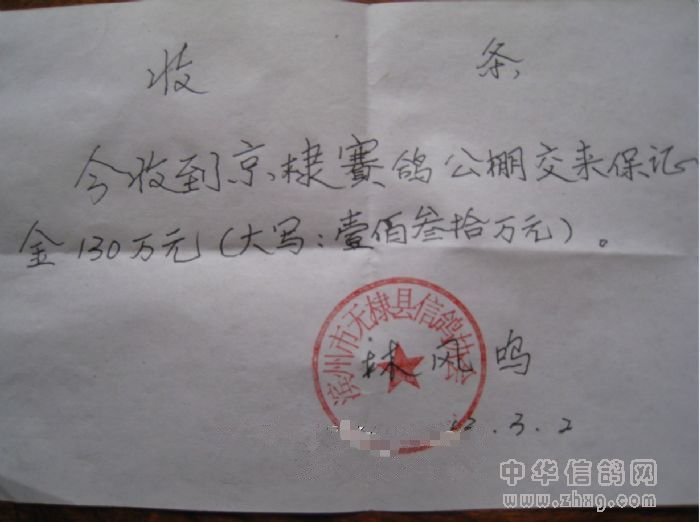 收 条
今收到京棣赛鸽公棚交来保证
金130万元(大写:壹佰叁拾万元)。
滨州市无棣县信鸽协会
林风鸣
12.3.2
中华信鸽网
www.zhxg.com